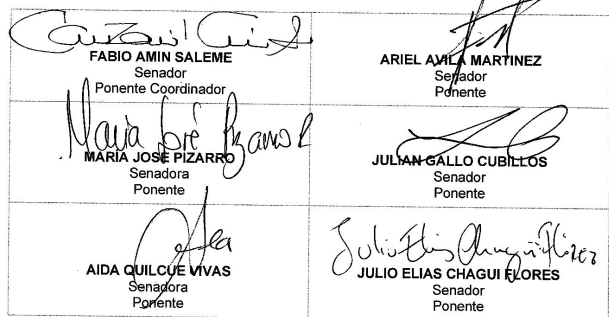 FABIO AMIN SALEME
Senador
Ponente Coordinador
ARIEL AVILA MARTINEZ
Senador
Ponente
Maria José Pizarro R
MARIA JOSE PIZARRO
Senadora
Ponente
JULIAN GALLO CUBILLOS
Senador
Ponente
AIDA QUILCUE VIVAS
Senadora
Ponente
Julio Elias Chagui Flórez
JULIO ELIAS CHAGUI FLORES
Senador
Ponente